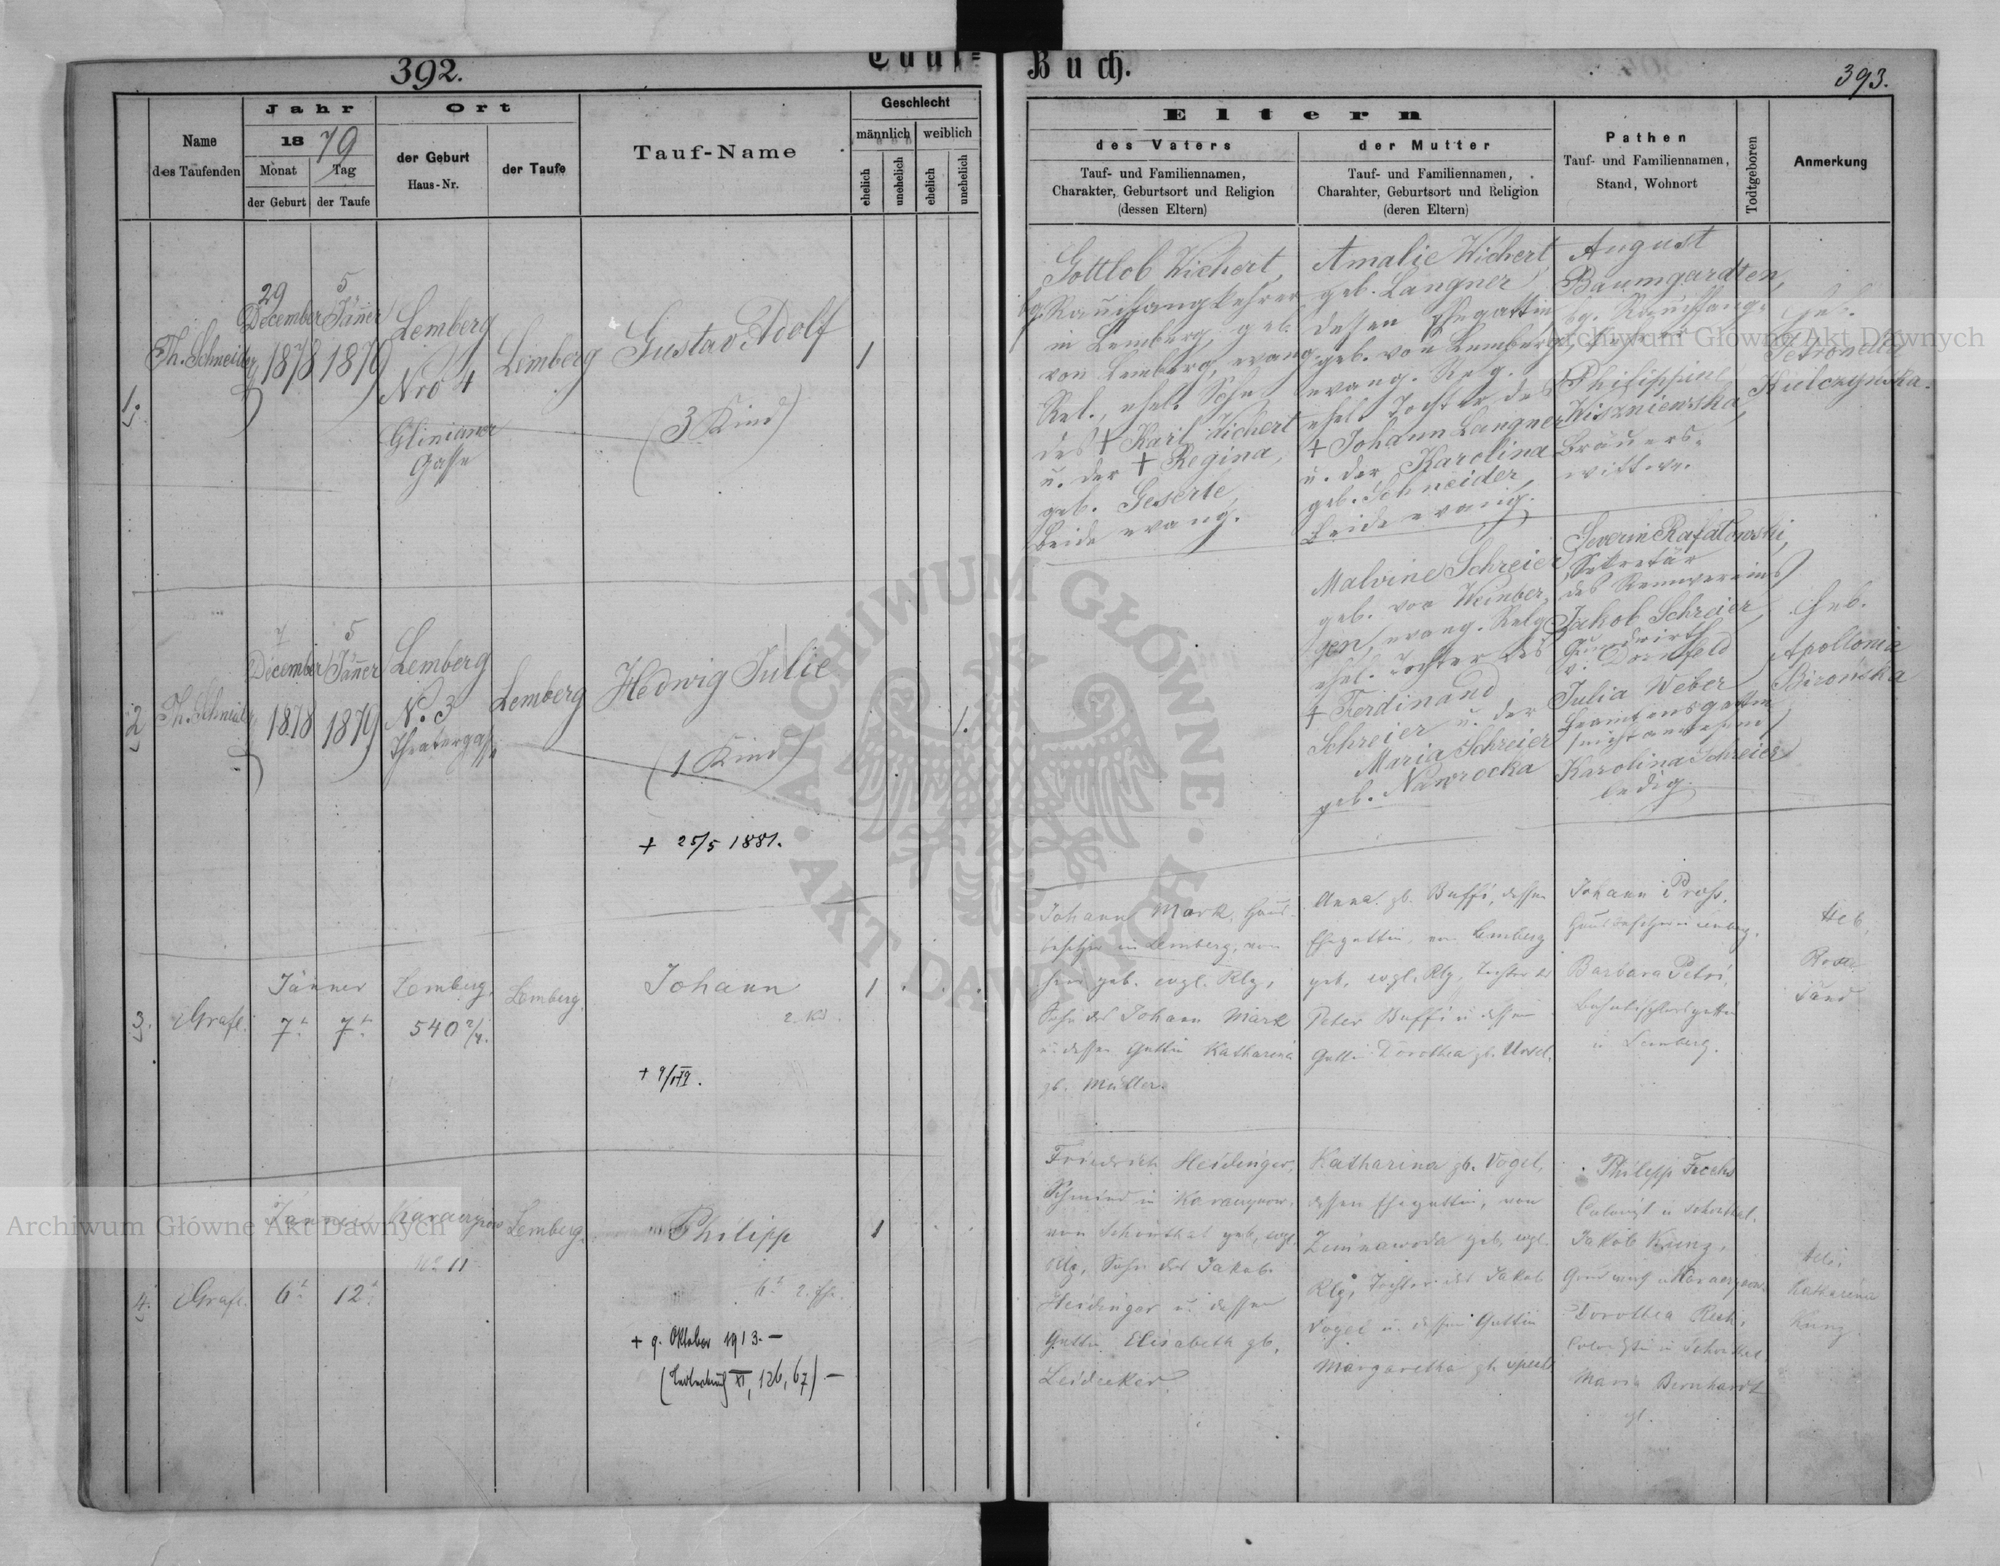 392.
Tauf=
Buch.
393.
Name
des Taufenden
Jahr
1879
Monat
der Geburt
Tag
der Taufe
Ort
der Geburt
Haus-Nr.
der Taufe
Tauf-Name
Geschlecht
männlich
weiblich
ehelich
unehelich
ehelich
unehelich
Eltern
des Vaters
Tauf- und Familiennamen,
Charakter, Geburtsort und Religion
(dessen Eltern)
der Mutter
Tauf- und Familiennamen,
Charahter, Geburtsort und Religion
(deren Eltern)
Pathen
Tauf- und Familiennamen,
Stand, Wohnort
Todtgeboren
Anmerkung
1.
Th. Schneider
29
December
1878
5
Jänner
1879
Lemberg
Nro 4
Glinianer
Gasse
Lemberg
Gustav Adolf
(3 Kind)
1
Gottlob Wichert,
bg. Rauchfangkehrer
in Lemberg, geb.
von Lemberg, evang.
Rel., ehel. Sohn
des + Karl Wichert
u. der + Regina,
geb. Geserle,
beide evang.
Amalie Wichert
geb. Langner,
dessen Ehegattin
geb. von Lemberg,
evang. Rlg.
ehel. Tochter des
+ Johann Langner
u. der Karolina
geb. Schneider,
beide evang.
August
Baumgardten,
bg. Rauchfang-
Philippine
Wiszniewska,
Bräuers-
wittwe.
Heb.
Petronella
Kulczynska.
2
Th. Schneider
7
December
1878
5
Jänner
1879
Lemberg
N. 3
Theatergasse
Lemberg
Hedwig Julie
(1 Kind)
+ 25/5 1881.
1.
Malvine Schreier
geb. von Weinber-
gen, evang. Relg
ehel. Tochter des
+ Ferdinand
Schreier u. der
Maria Schreier
geb. Nawrocka
Severin Rafalowski,
Sekretär
des Rennvereins
Jakob Schreier,
Grundwirth
v. Dornfeld
Julia Weber
Beamtensgattin
Karolina Schreier
ledig.
Heb.
Apollonia
3.
Grafl.
Jänner
7t.
7t.
Lemberg,
540 2/4.
Lemberg.
Johann
2. Kd.
1
Johann Mark, Haus-
besitzer in Lemberg, von
hier geb. evgl. Rlg,
Sohn des Johann Mark
u. dessen Gattin Katharina
gb. Müller.
Anna gb. Buffi, dessen
Ehegattin, von Lemberg
geb. evgl. Rlg, Tochter des
Peter Buffi u. dessen
Gattin Dorothea gb.
Johann
Hausbesitzer in Lemberg.
Barbara Petri,
in Lemberg.
Heb.
Rosa
4.
Grafl.
Jänner
6t.
12t.
No 11
Lemberg.
Philipp
+ 9. Oktober 1913. —
XI, 126, 67) —
1
Friedrich Heidinger,
Schmied in
von Schönthal geb, evgl.
Rlg, Sohn des Jakob
Heidinger u. dessen
Gattin Elisabeth gb.
Leidecker.
Katharina gb. Vogel,
dessen Ehegattin, von
Zimnawoda geb, evgl.
Rlg, Tochter des Jakob
Vogel u. dessen Gattin
Margaretha gb.
Philipp
Colonist in Schönthal.
Jakob Kung,
Dorothea
in Schönthal.
Maria Bernhardt
Heb.
Katharina
Kung
Archiwum Główne Akt Dawnych
Archiwum Główne Akt Dawnych
ARCHIWUM GŁÓWNE · AKT DAWNYCH ·